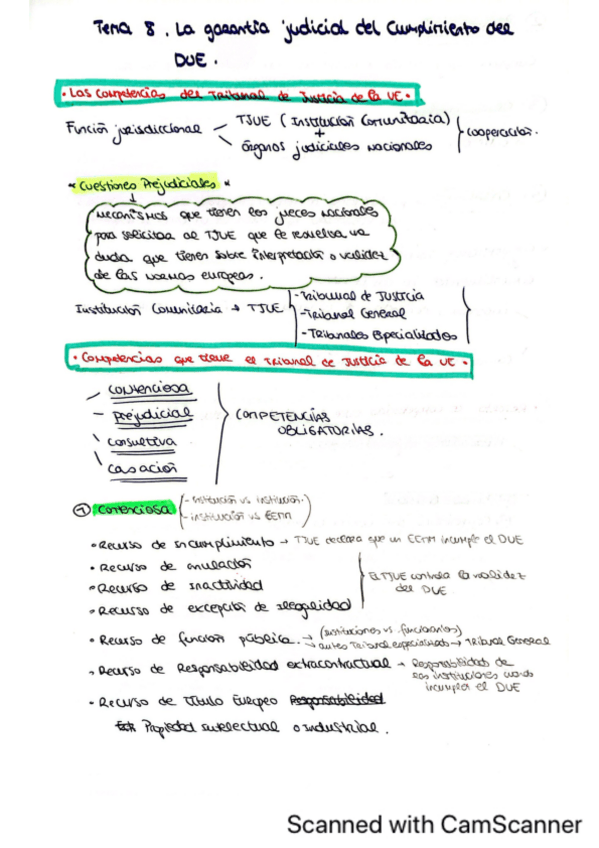 Tema 8. La garantía judicial del cumplimiento del
DUE.
• Las competencias del Tribunal de Justicia de la UE •
Función jurisdiccional
TJUE (Institución Comunitaria)
+
Órganos judiciales nacionales
Cooperación.
* Cuestiones Prejudiciales *
↓
Mecanismos que tienen los jueces nacionales
para solicitar al TJUE que le resuelva una
duda que tienen sobre interpretación o validez
de las normas europeas.
Institución Comunitaria → TJUE
- Tribunal de Justicia
- Tribunal General
- Tribunales Especializados
• Competencias que tiene el Tribunal de Justicia de la UE •
- contenciosa
- prejudicial
- consultiva
- casación
COMPETENCIAS
OBLIGATORIAS.
① Contenciosa
- institución vs institución.
- institución vs EEMM
• Recurso de incumplimiento → TJUE declara que un EEMM incumple el DUE
• Recurso de anulación
• Recurso de inactividad
• Recurso de excepción de ilegalidad
El TJUE controla la validez
del DUE
• Recurso de función pública. → (instituciones vs. funcionarios)
→ antes Tribunal especializado → Tribunal General
• Recurso de Responsabilidad extracontractual → Responsabilidad de
las instituciones cuando
incumplen el DUE
• Recurso de título Europeo Responsabilidad
Propiedad intelectual o industrial.
Scanned with CamScanner